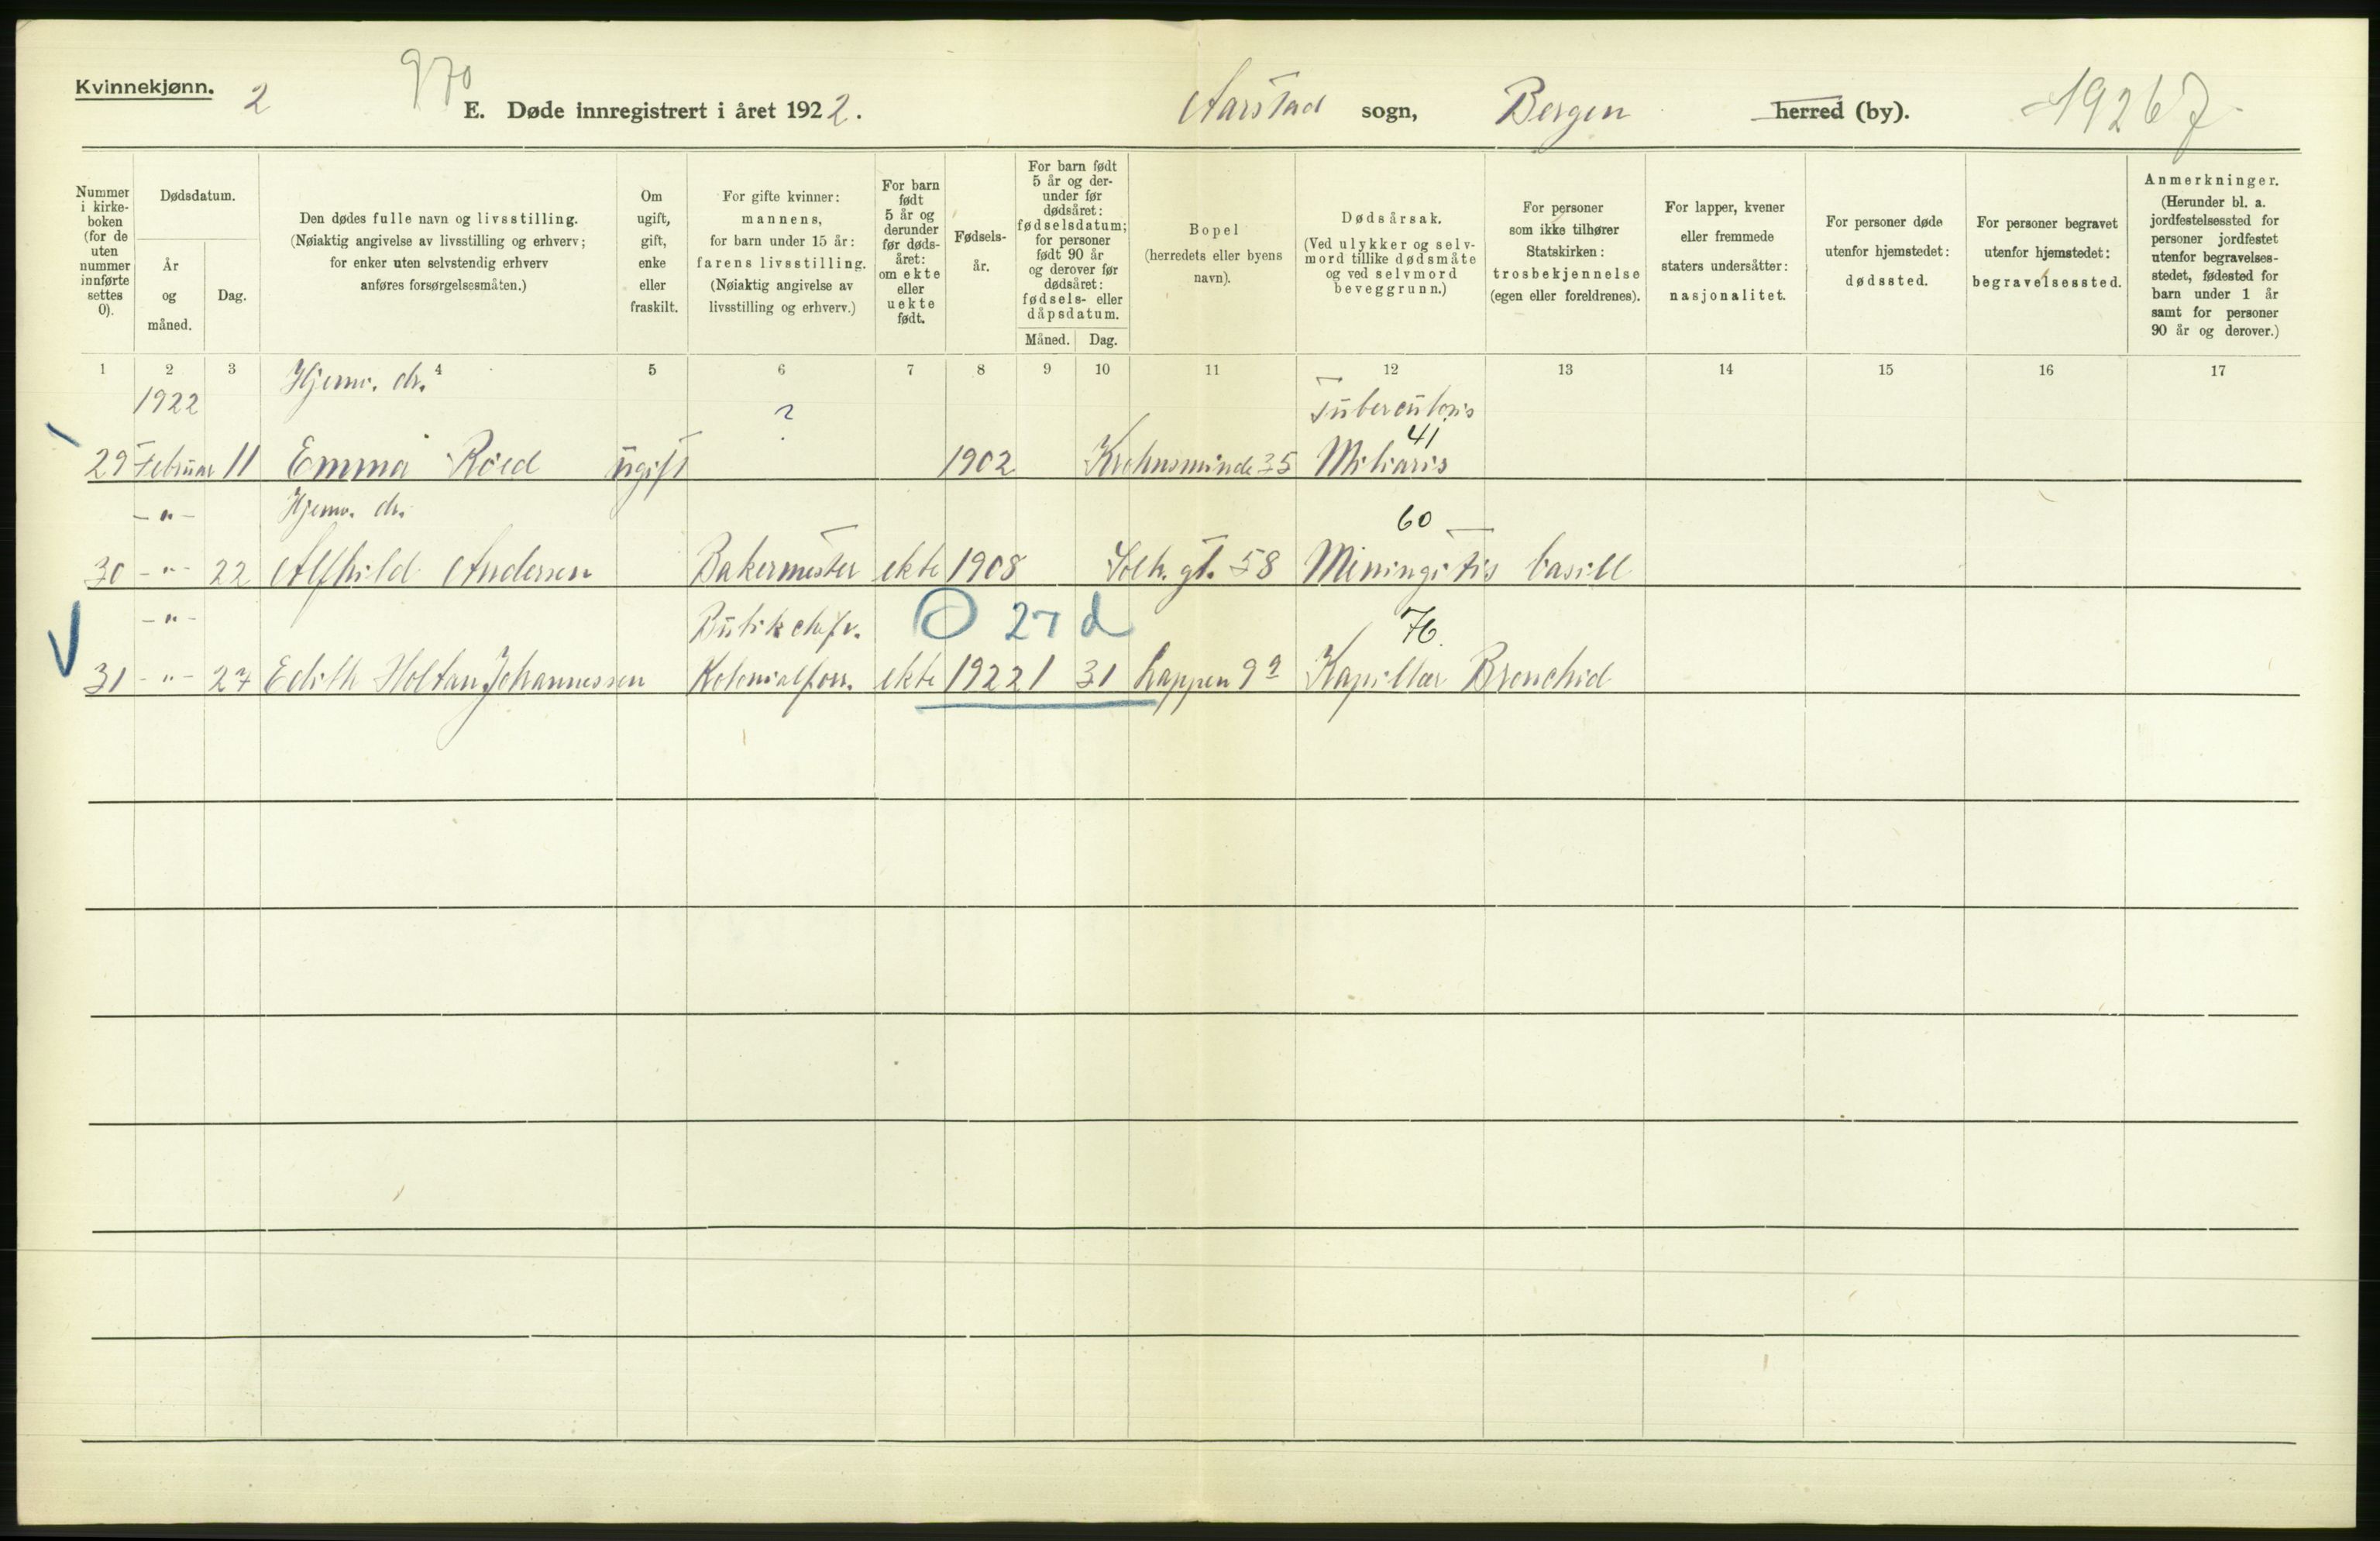 Kvinnekjønn. 2 970
E. Døde innregistrert i året 1922. Aarstad sogn, Bergen herred (by). 19267
Nummer i kirke-boken (for de uten nummer innførte settes 0).
Dødsdatum.
År og måned.
Dag.
Den dødes fulle navn og livsstilling.
(Nøiaktig angivelse av livsstilling og erhverv;
for enker uten selvstendig erhverv
anføres forsørgelsesmåten.)
Om
ugift,
gift,
enke
eller
fraskilt.
For gifte kvinner:
mannens,
for barn under 15 år:
farens livsstilling.
(Nøiaktig angivelse av
livsstilling og erhverv.)
For barn
født
5 år og
derunder
før døds-
året:
om ekte
eller
uekte
født.
Fødsels-
år.
For barn født
5 år og der-
under før
dødsåret:
fødselsdatum;
for personer
født 90 år
og derover før
dødsåret:
fødsels- eller
dåpsdatum.
Måned. Dag.
Bopel
(herredets eller byens
navn).
Dødsårsak.
(Ved ulykker og selv-
mord tillike dødsmåte
og ved selvmord
beveggrunn.)
For personer
som ikke tilhører
Statskirken:
trosbekjennelse
(egen eller foreldrenes).
For lapper, kvener
eller fremmede
staters undersåtter:
nasjonalitet.
For personer døde
utenfor hjemstedet:
dødssted.
For personer begravet
utenfor hjemstedet:
begravelsessted.
Anmerkninger.
(Herunder bl. a.
jordfestelsessted for
personer jordfestet
utenfor begravelses-
stedet, fødested for
barn under 1 år
samt for personer
90 år og derover.)
1 2 3 4 5 6 7 8 9 10 11 12 13 14 15 16 17
1922 Hjemv. dr. ? Tuberculosis
41
29 Februar 11 Emma Röed ugift 1902 Krohnsminde 35 Miliaris
-"- Hjemv. dr. 60
30 -"- 22 Alfhild Andersen Bakermester ekte 1908 Solh. gt. 58 Miningitis basill
-"- Butikchefv. 27 d 76
31 -"- 27 Edith Holtan Johannessen Kolonialforr. ekte 1922 1 31 Lappen 9 a Kapillær Bronchid